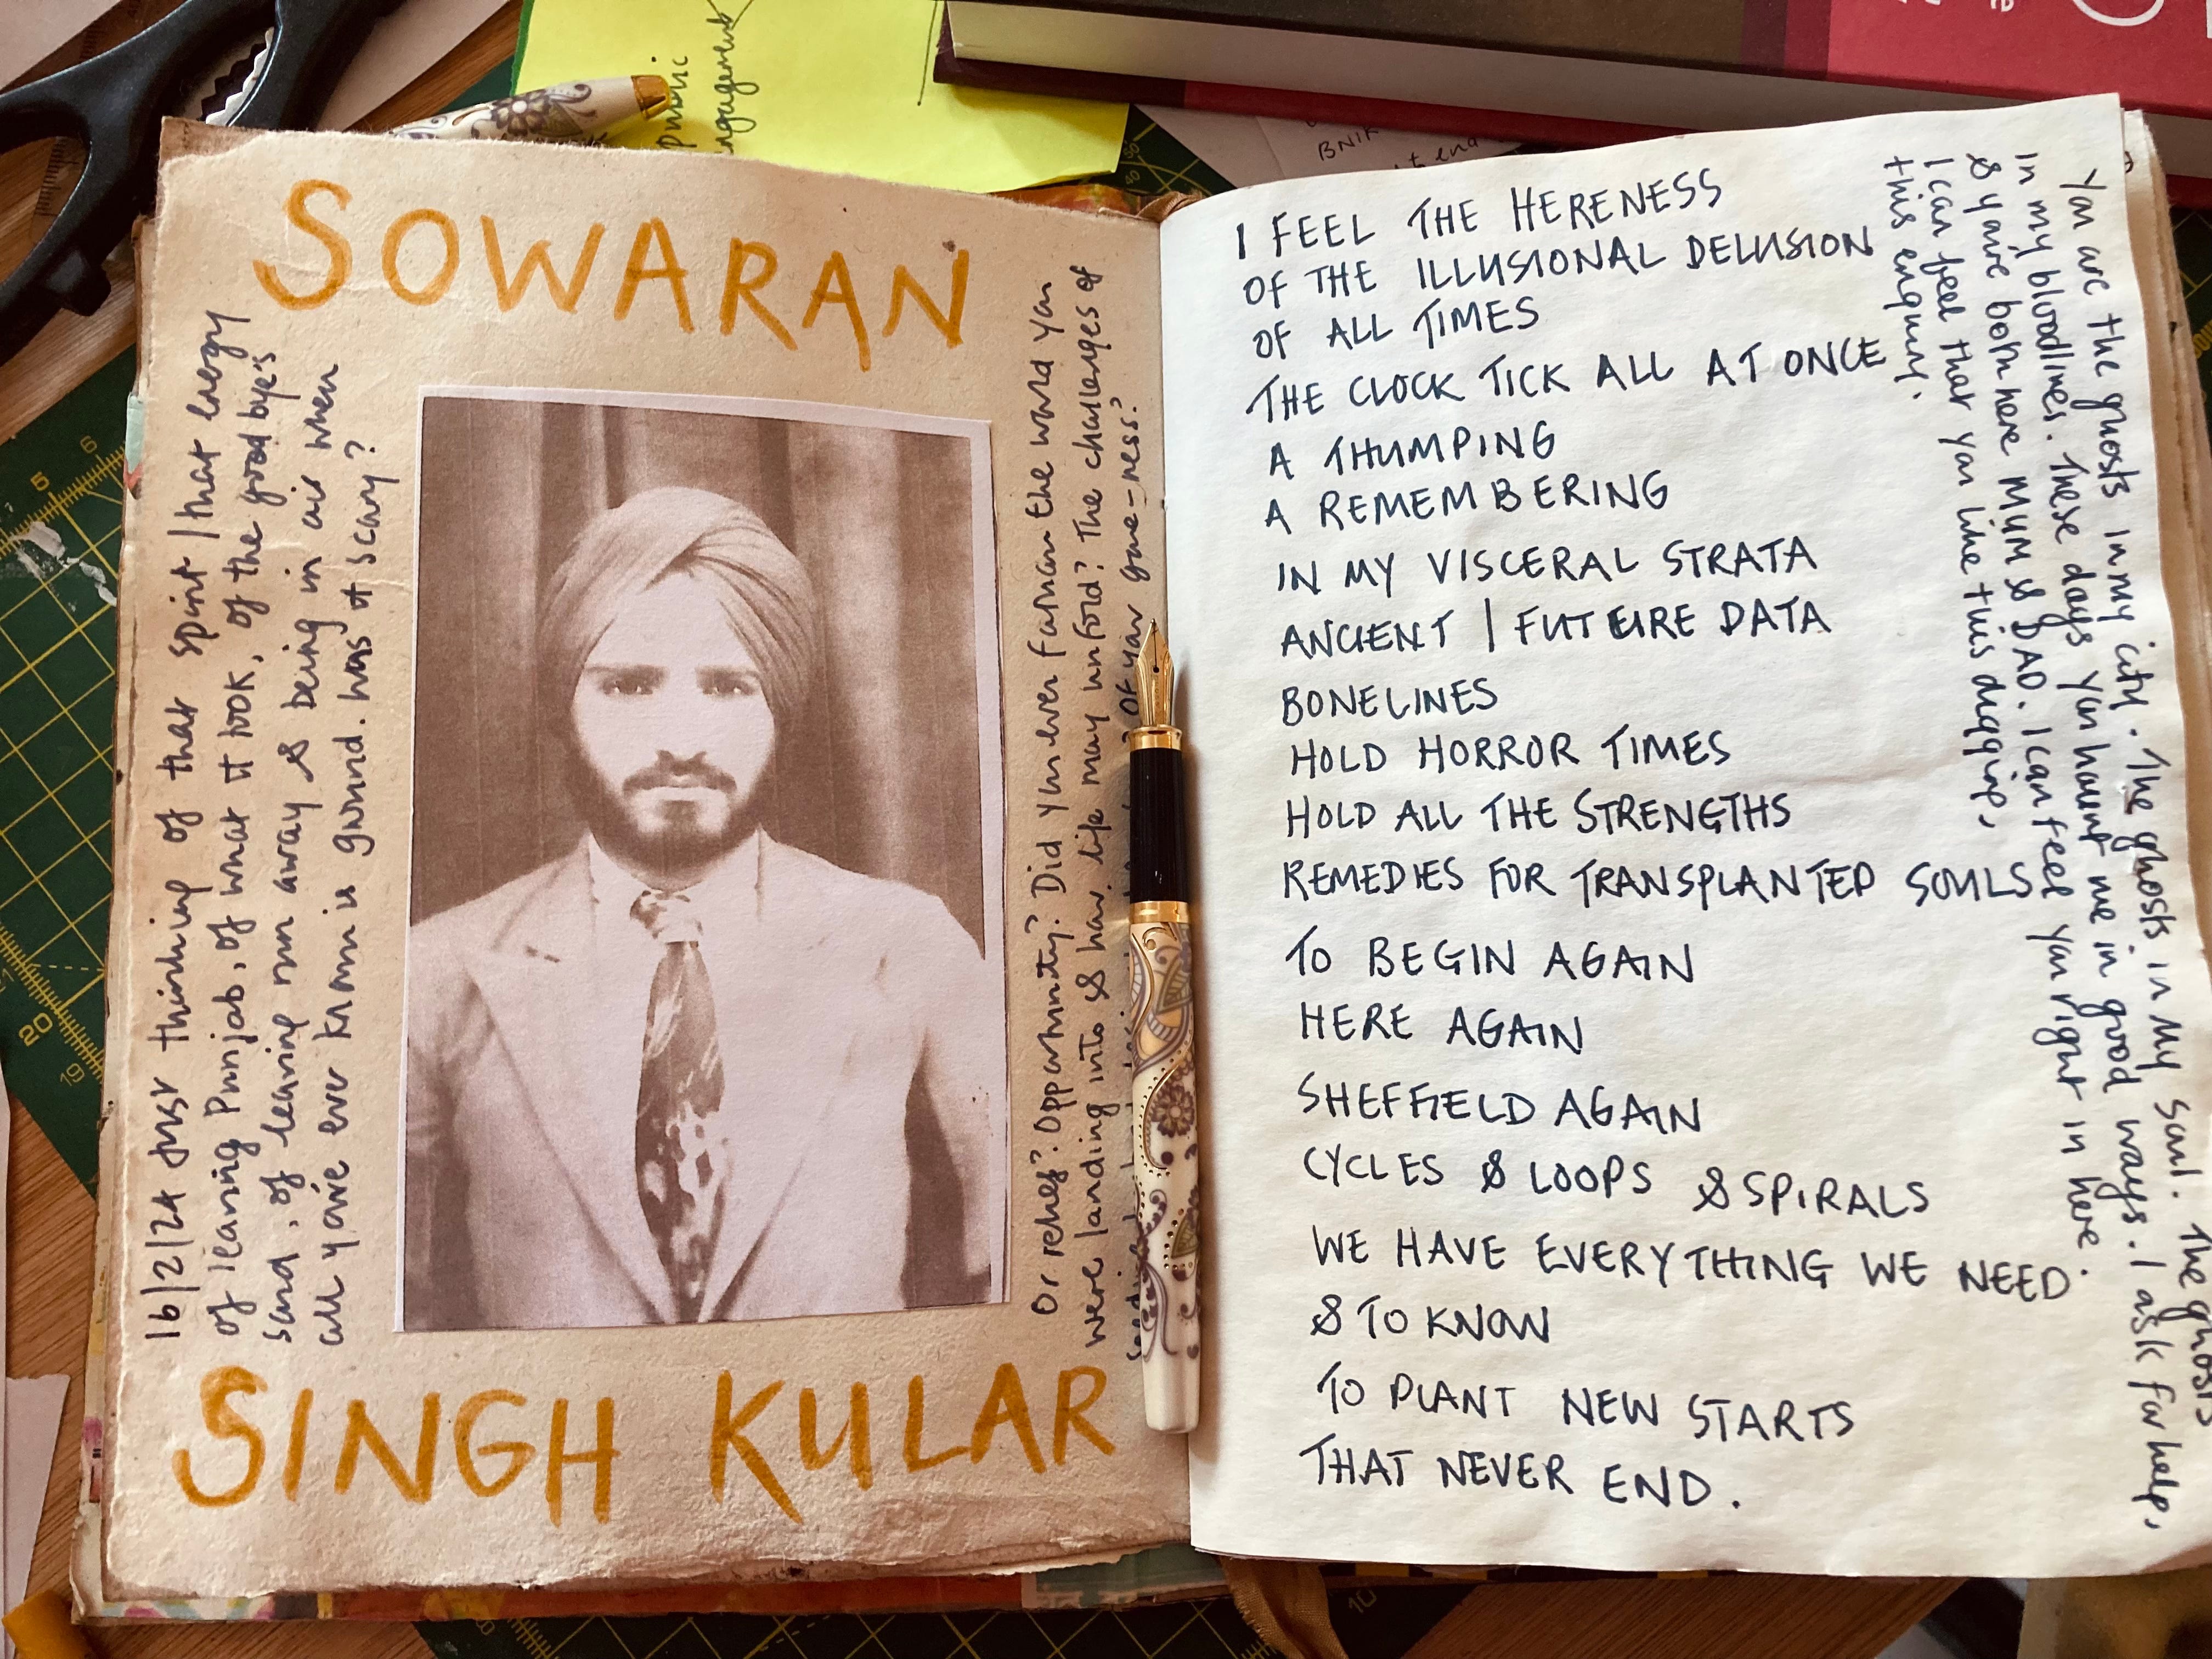 SOWARAN
16/2/24 just thinking of that spirit / that energy
of leaving Punjab, of what it took, of the goodbye's
said, of leaving run away & being in air when
all you've ever known is ground. Was it scary?
Or relief? Opportunity? Did you ever fathom the world you
were landing into & how life may unfold? The challenges of
of your gone-ness?
SINGH KULAR
I FEEL THE HERENESS
OF THE ILLUSIONAL DELUSION
OF ALL TIMES
THE CLOCK TICK ALL AT ONCE
A THUMPING
A REMEMBERING
IN MY VISCERAL STRATA
ANCIENT | FUTEIRE DATA
BONELINES
HOLD HORROR TIMES
HOLD ALL THE STRENGTHS
REMEDIES FOR TRANSPLANTED SOULS
TO BEGIN AGAIN
HERE AGAIN
SHEFFIELD AGAIN
CYCLES & LOOPS & SPIRALS
WE HAVE EVERYTHING WE NEED.
& TO KNOW
TO PLANT NEW STARTS
THAT NEVER END.
You are the ghosts in my city. The ghosts in my soul. The ghosts
in my bloodlines. These days you haunt me in good ways. I ask for help,
& you're both here MUM & DAD. I can feel you right in here.
I can feel that you like this digging,
this enquiry.
public
engagement
BNIK
end
5
6
20
19
10